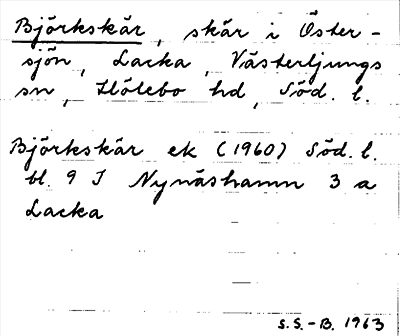 Björkskär, skär i Öster-
sjön, Lacka, Västerljungs
sn, Hölebo hd, Söd. l.
Björkskär ek (1960) Söd. l.
bl. 9 I Nynäshamn 3 a
Lacka
S.S.-B. 1963